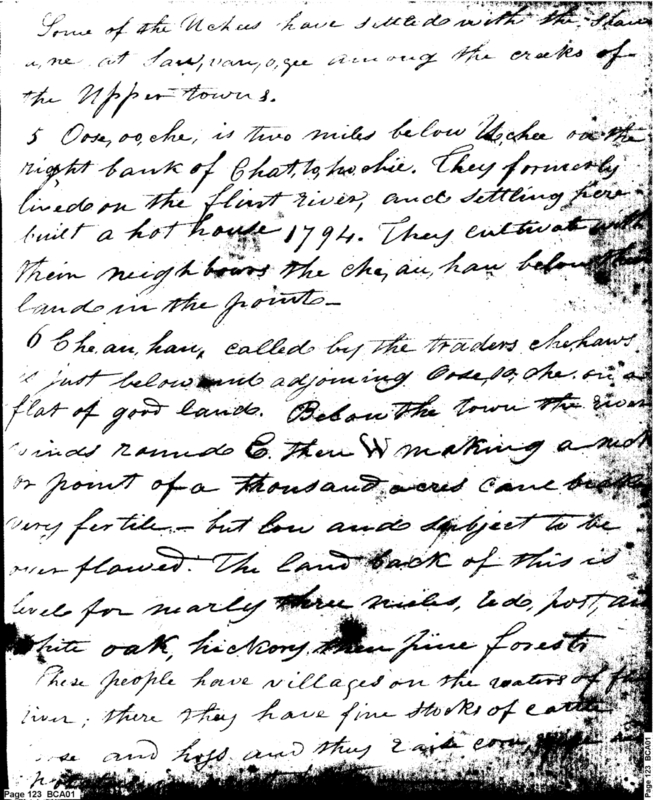 Some of the Uchees have settled with the Shaw
a,ne at Sau,van,o,gee among the creeks of
the Upper towns.
5 Oose,oo,che, is two miles below Uchee on the
right bank of Chat,to,ho,chie. They formerly
lived on the flint river, and settling here
built a hot house 1794. They cultivate with
their neighbours the che,au,hau below them
land in the point—
6 Che,au,hau, called by the traders che,haws
is just below and adjoining Oose,oo,che on a
flat of good land. Below the town the river
winds round E. then W making a neck
or point of a thousand acres cane brake
very fertile — but low and subject to be
over flowed. The land back of this is
level for nearly three miles, red, post, and
white oak, hickory, then pine forest
These people have villages on the waters of
river; there they have fine stocks of cattle
and hogs and they raise corn,
Page 123 BCA01
Page 123 BCA01